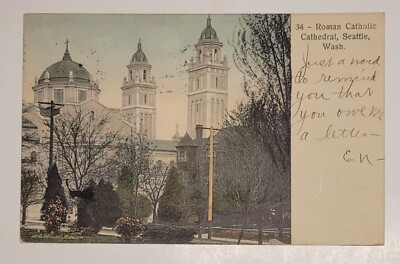 34 - Roman Catholic
Cathedral, Seattle,
Wash.
Just a word
to remind
you that
you owe me
a letter-
E N-